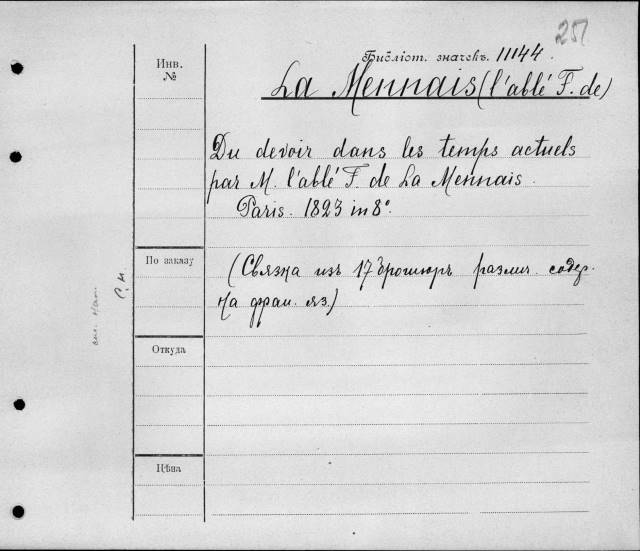 257
Библіот. значекъ. 11144.
La Mennais (l'ablé F. de)
Инв.
№
Du devoir dans les temps actuels
par M. l'ablé F. de La Mennais.
Paris. 1823 in 8°.
По заказу
(Связка изъ 17 брошюръ различ. содер.
на фран. яз.)
Откуда
Цѣна